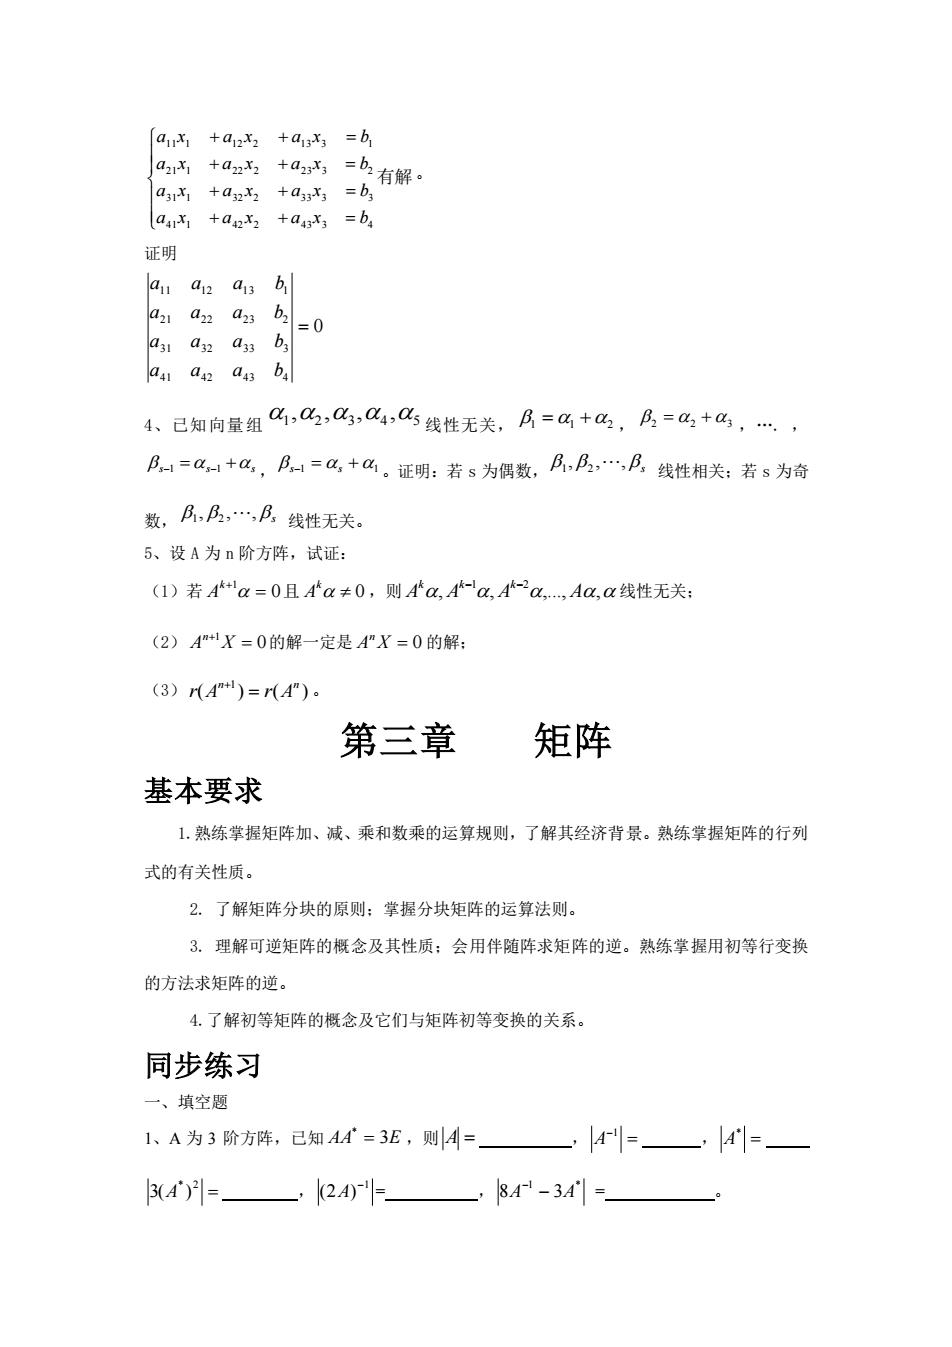 a₁₁x₁ + a₁₂x₂ + a₁₃x₃ = b₁
a₂₁x₁ + a₂₂x₂ + a₂₃x₃ = b₂
a₃₁x₁ + a₃₂x₂ + a₃₃x₃ = b₃
a₄₁x₁ + a₄₂x₂ + a₄₃x₃ = b₄
有解。
证明
a₁₁ a₁₂ a₁₃ b₁
a₂₁ a₂₂ a₂₃ b₂
a₃₁ a₃₂ a₃₃ b₃
a₄₁ a₄₂ a₄₃ b₄
= 0
4、已知向量组 α₁,α₂,α₃,α₄,α₅ 线性无关，β₁ = α₁ + α₂，β₂ = α₂ + α₃，…．，
βₛ₋₁ = αₛ₋₁ + αₛ，βₛ₋₁ = αₛ + α₁。证明：若 s 为偶数，β₁,β₂,⋯,βₛ 线性相关；若 s 为奇
数，β₁,β₂,⋯,βₛ 线性无关。
5、设 A 为 n 阶方阵，试证：
（1）若 Aᵏ⁺¹α = 0且 Aᵏα ≠ 0，则 Aᵏα, Aᵏ⁻¹α, Aᵏ⁻²α,..., Aα,α 线性无关；
（2）Aⁿ⁺¹X = 0的解一定是 AⁿX = 0 的解；
（3）r(Aⁿ⁺¹) = r(Aⁿ)。
第三章 矩阵
基本要求
1.熟练掌握矩阵加、减、乘和数乘的运算规则，了解其经济背景。熟练掌握矩阵的行列
式的有关性质。
2. 了解矩阵分块的原则；掌握分块矩阵的运算法则。
3. 理解可逆矩阵的概念及其性质；会用伴随阵求矩阵的逆。熟练掌握用初等行变换
的方法求矩阵的逆。
4.了解初等矩阵的概念及它们与矩阵初等变换的关系。
同步练习
一、填空题
1、A 为 3 阶方阵，已知 AA* = 3E，则|A| = ________，|A⁻¹| = ______，|A*| = ____
|3(A*)²| = _______，|(2A)⁻¹|=________，|8A⁻¹ − 3A*| =__________。